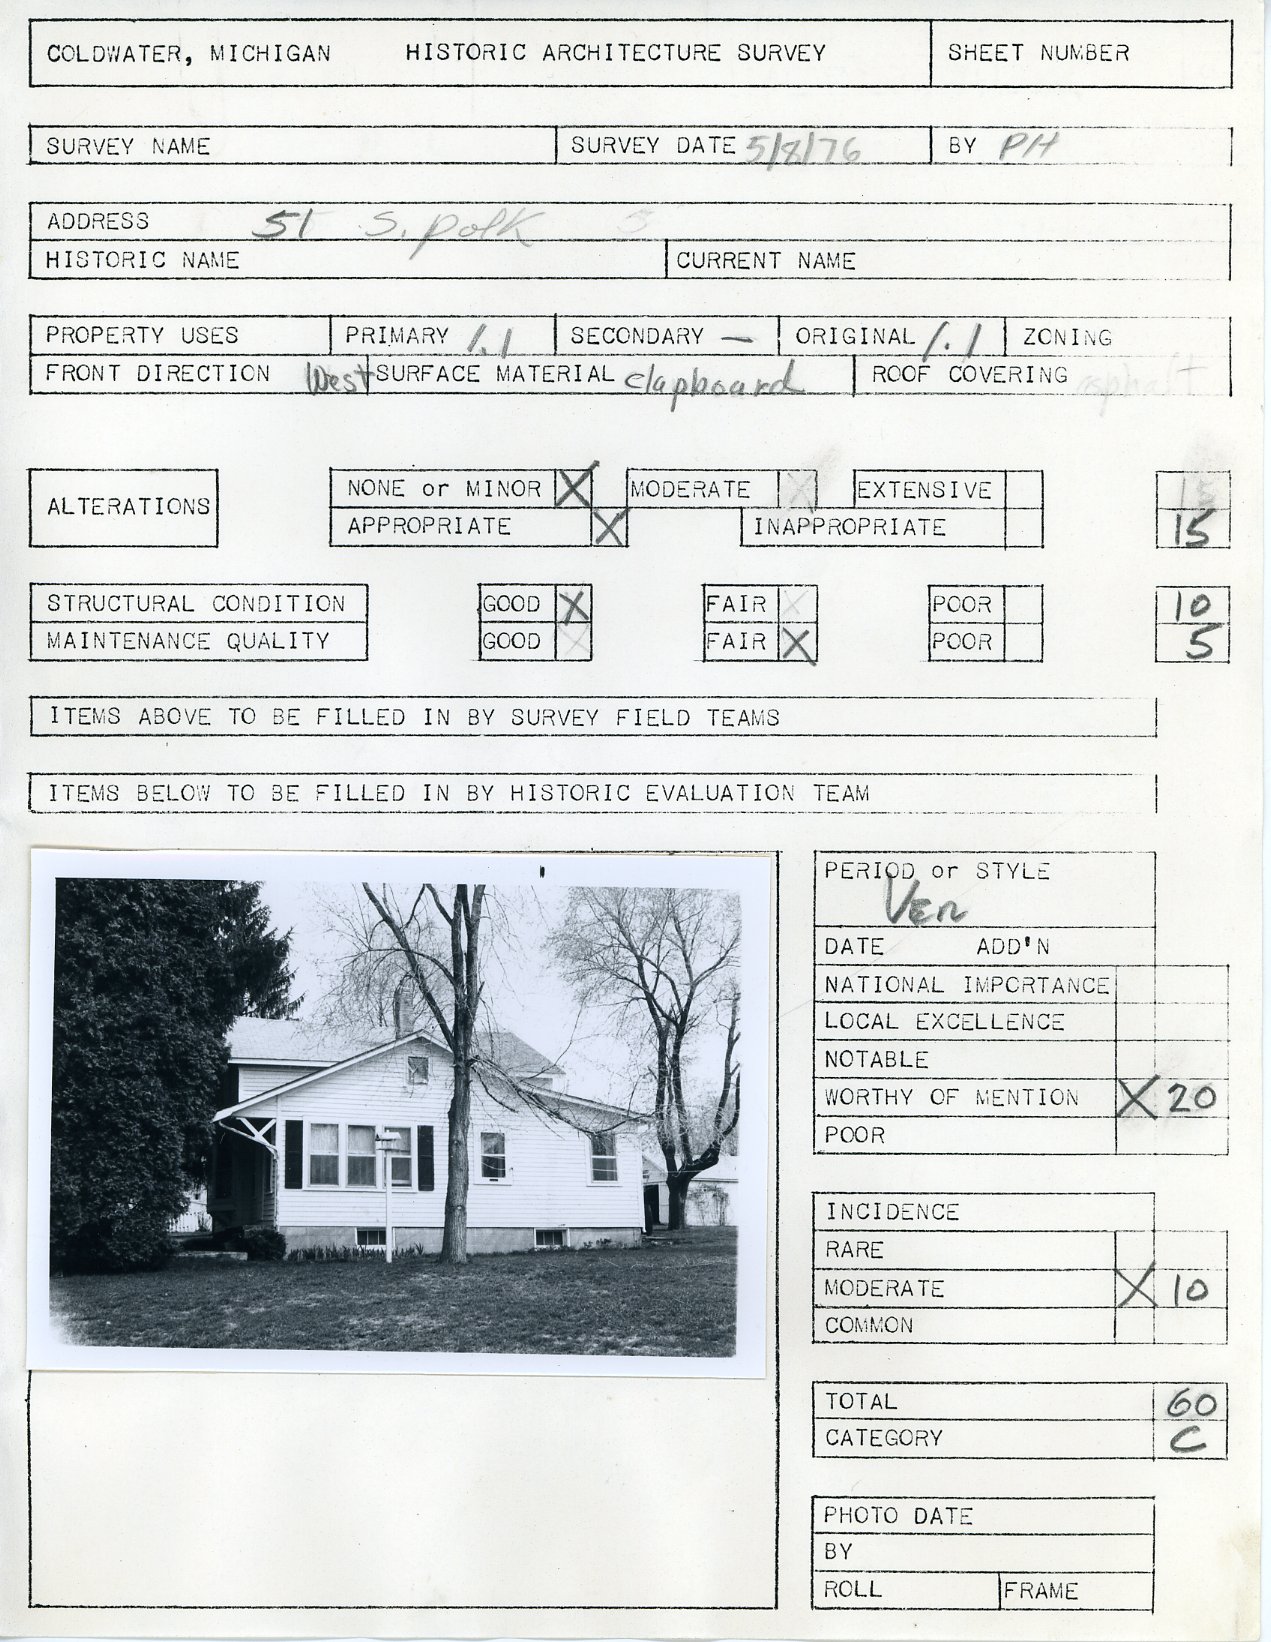 COLDWATER, MICHIGAN HISTORIC ARCHITECTURE SURVEY SHEET NUMBER
SURVEY NAME SURVEY DATE 5/8/76 BY PH
ADDRESS 51 S. Polk
HISTORIC NAME CURRENT NAME
PROPERTY USES PRIMARY 1.1 SECONDARY — ORIGINAL 1.1 ZONING
FRONT DIRECTION West SURFACE MATERIAL clapboard ROOF COVERING asphalt
ALTERATIONS NONE or MINOR X MODERATE X EXTENSIVE 15
APPROPRIATE X INAPPROPRIATE 15
STRUCTURAL CONDITION GOOD X FAIR X POOR 10
MAINTENANCE QUALITY GOOD X FAIR X POOR 5
ITEMS ABOVE TO BE FILLED IN BY SURVEY FIELD TEAMS
ITEMS BELOW TO BE FILLED IN BY HISTORIC EVALUATION TEAM
PERIOD or STYLE
Ver
DATE ADD'N
NATIONAL IMPORTANCE
LOCAL EXCELLENCE
NOTABLE
WORTHY OF MENTION X 20
POOR
INCIDENCE
RARE
MODERATE X 10
COMMON
TOTAL 60
CATEGORY C
PHOTO DATE
BY
ROLL FRAME